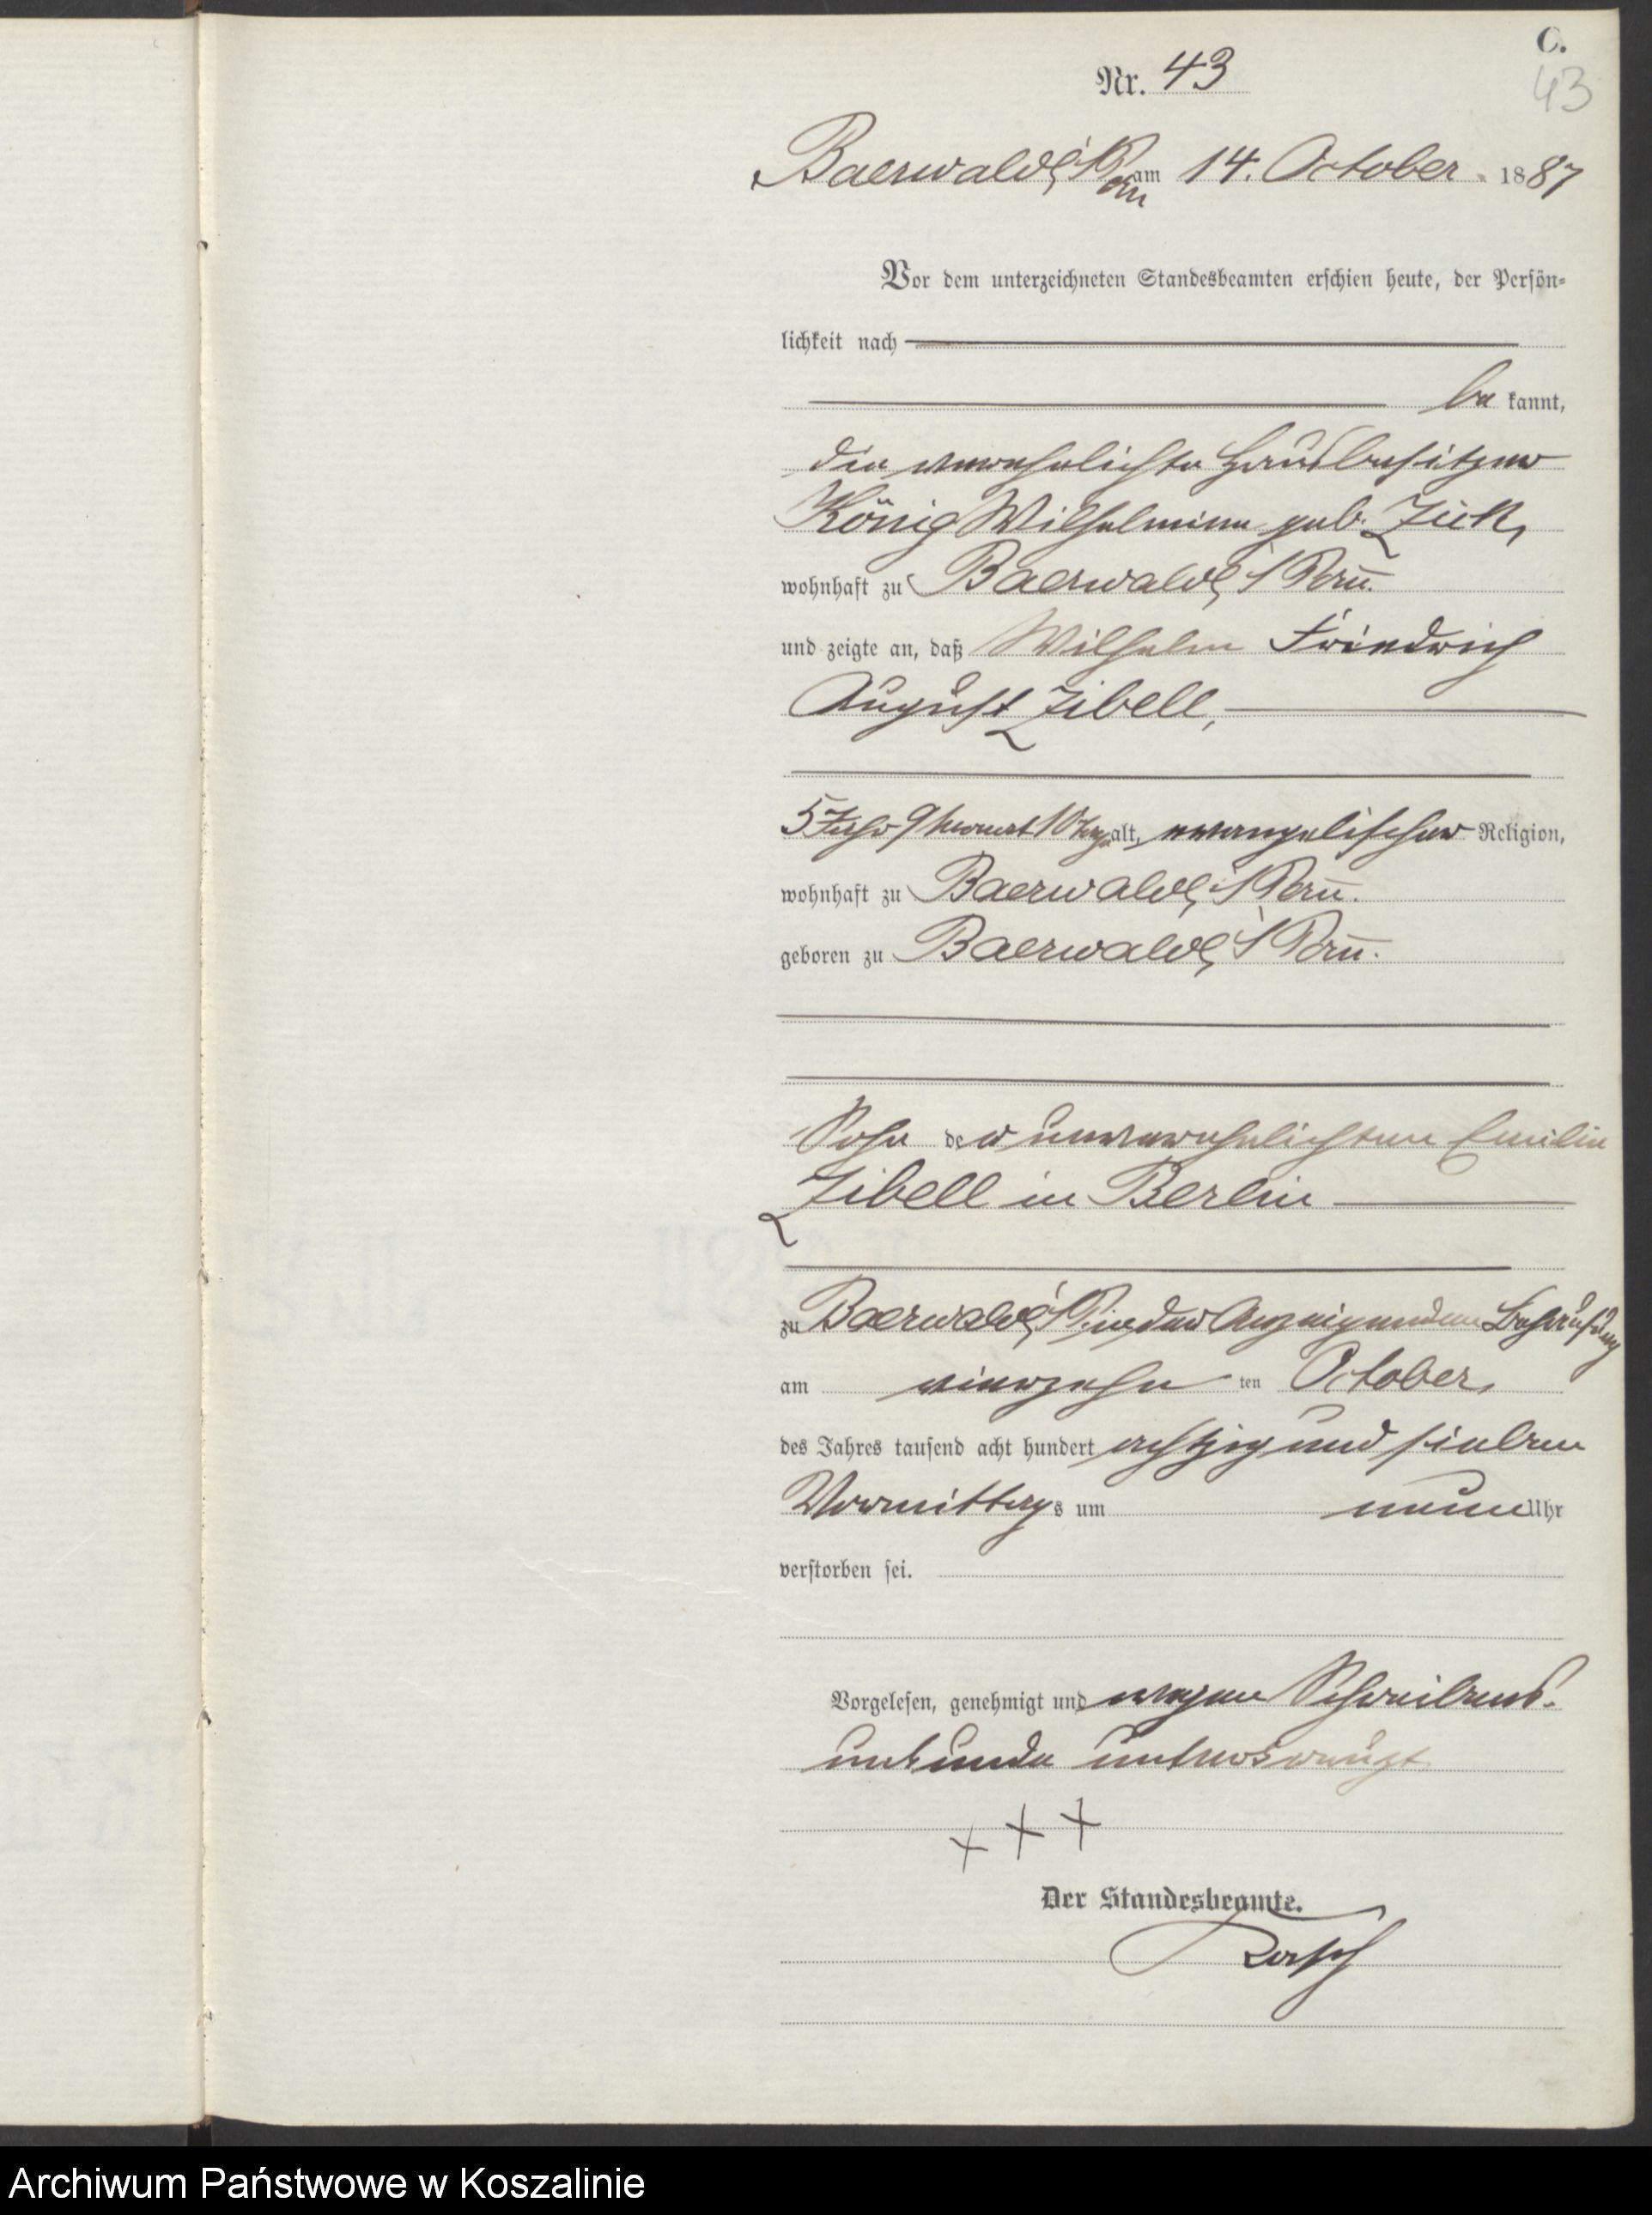 C.
Nr. 43
43
Baerwalde i/Pom am 14. October 1887
Vor dem unterzeichneten Standesbeamten erschien heute, der Persön-
lichkeit nach
be kannt,
die verehelichte Hausbesitzer
König Wilhelmine geb. Zick,
wohnhaft zu Baerwalde i/Pom.
und zeigte an, daß Wilhelm Friedrich
August Zibell,
5 Jahr 9 Monat 10 Tage alt, evangelischer Religion,
wohnhaft zu Baerwalde i/Pom.
geboren zu Baerwalde i/Pom.
Sohn der unverehelichten Emilie
Zibell in Berlin
zu Baerwalde i/P. in der Anzeigenden Behausung
am vierzehn ten October,
des Jahres tausend acht hundert achtzig und sieben
Vormittags um neun Uhr
verstorben sei.
Vorgelesen, genehmigt und wegen Schreibens-
unkunde unterkreuzt
+ + +
Der Standesbeamte.
Archiwum Państwowe w Koszalinie